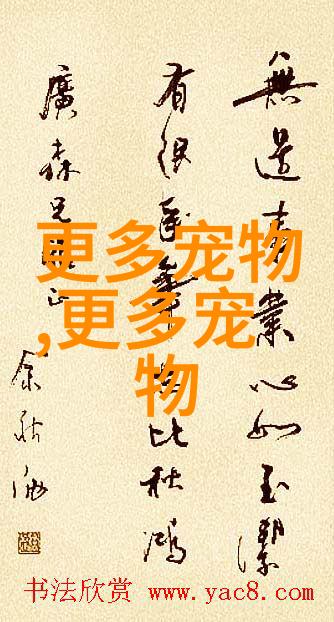 無邊業心如玉潔
有限比秋鴻
廣森兄正
余秋雨
更多宠物
,更多宠
物
书法欣赏 www.yac8.com